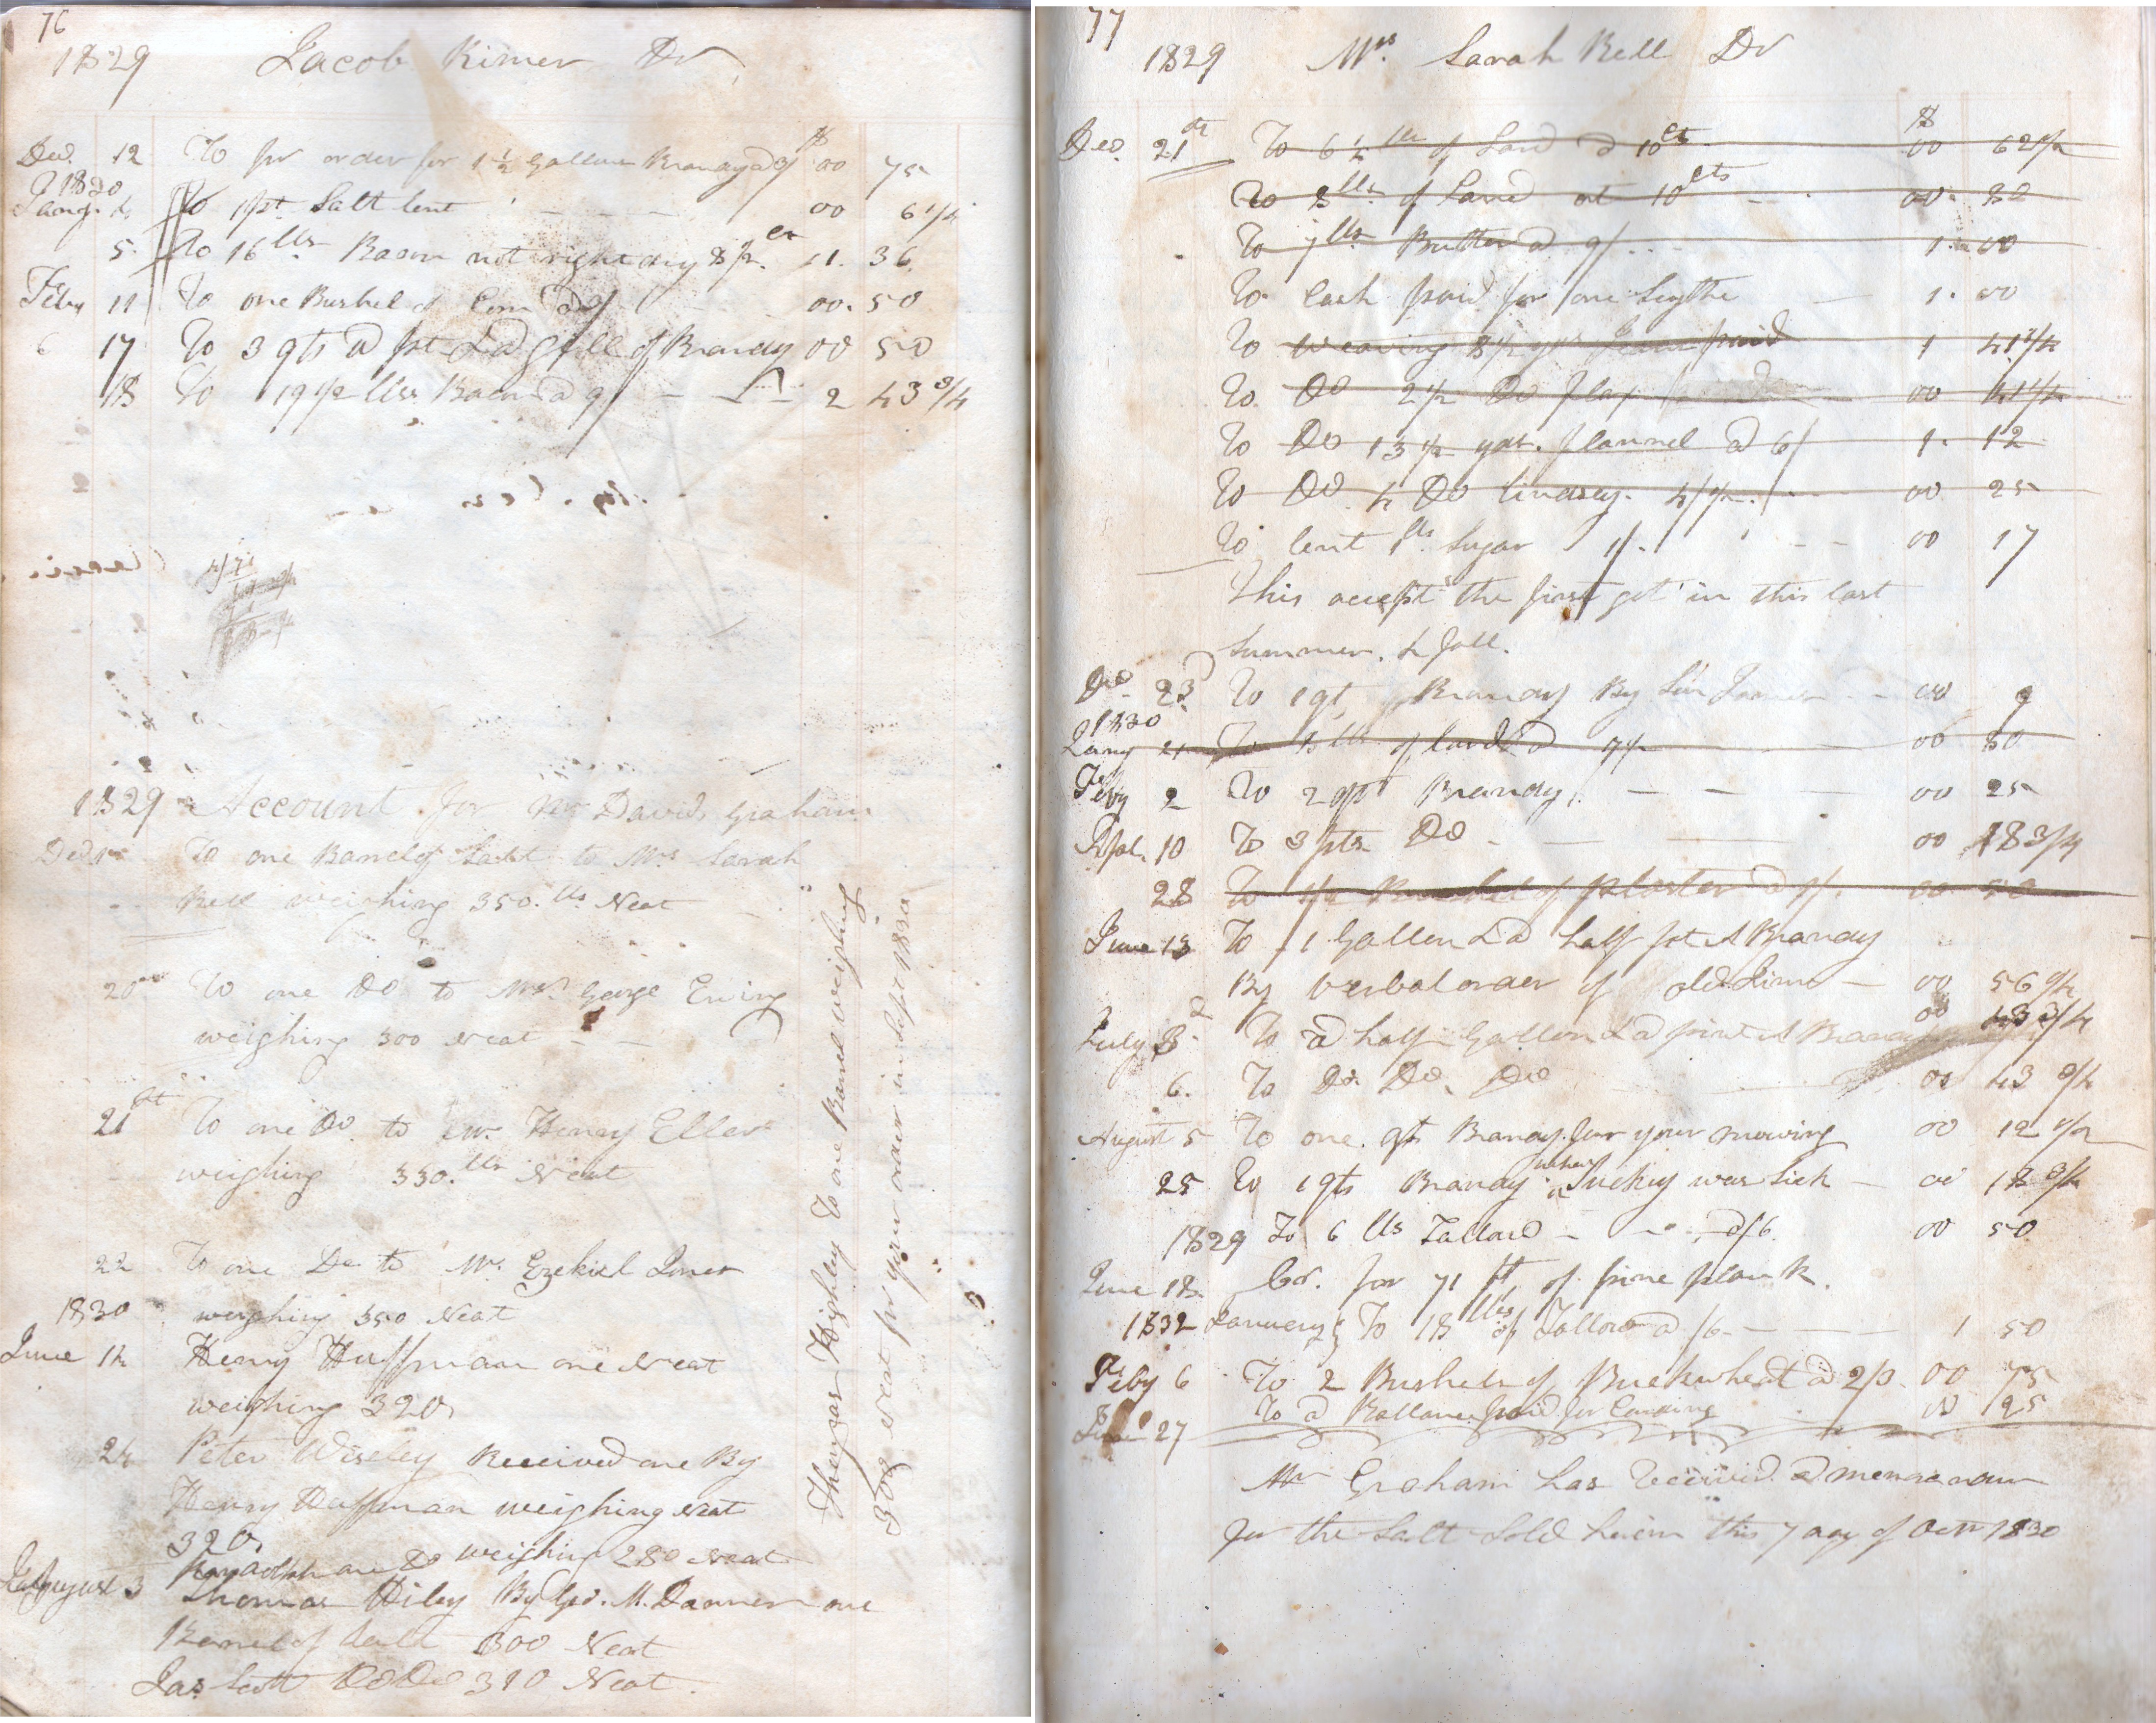 76
1829 Jacob Kimer Dr
$
Dec. 12 To pr order for 1 1/2 Gallons Brandy a 3/ 00 75
1830
Jany. To 1 pt Salt lent 00 6 1/4
5. To 16 lbs Bacon not right dry 8 1/2 cts 1. 36
Feby 11 To one Bushel of Corn a 3/ 00. 50
17 To 3 qts a pt & a gill of Brandy 00 50
18 To 19 1/2 lbs. Bacon a 9/ 2 43 3/4
1829 Account for Mr David Graham
Dec To one Barrel of Salt to Mrs Sarah
Bell weighing 350. lbs Neat
20 To one Do to Mr George Ewing
weighing 300 Neat
21 st To one Do. to Mr. Henry Eller
weighing 330. lbs Neat
22 To one Do to Mr. Ezekiel
1830 weighing 350 Neat
June 14 Henry Huffman one Neat
weighing 320
24 Peter Wiseley Received one By
Henry Huffman weighing Neat
320
one Do weighing 280 Neat
August 3 Thomas Hiley By Geo. M. Danner one
Barrel of Salt 300 Neat
Jas Scott Do Do 310 Neat.
Thomas Highley To one Barrel weighing
300 lb Neat pr your order in Sept 1830
77
1829 Mrs. Sarah Bell Dr
$
Dec. 21st To 6 1/4 lb of Lard a 10 cts 00 62 1/2
To 8 lbs. of Lard at 10 cts 00. 82
To 7 lbs Butter a 9/ 1. 00
To Cash paid for one Scythe 1. 00
To Weaving 8 1/2 yds Jean paid 1 41 1/4
To Do 2 1/2 Do flax 00 41 1/4
To Do 13 1/2 yds. flannel a 6/ 1. 12
To Do 4 Do lindsey. 4/ 1/2. 00 25
To lent 1 lb. Sugar 1/. 00 17
This accept the first got in this last
Summer. & fall.
Dec 23 To 1 qt Brandy By Jim 00 9
1830
Jany 21 To lbs of lard a 7 1/2 00 80
Feby 2 To 2 qts Brandy. 00 25
Apl. 10 To 3 pts Do 00 18 3/4
28 To 1/2 Bushel of plaster a 00 50
June 13 To 1 Gallon & a half pt of Brandy
By verbal order of old Jim 00 56 3/4
July 3. To a half Gallon & a pint of Brandy 00 43 3/4
6. To Do. Do. Do 00 43 3/4
August 5 To one qts Brandy for your mowing 00 12 1/2
25 To 1 qts Brandy when Suckey was Sick 00 18 3/4
1829 To 6 lbs Tallow a/6. 00 50
June 18. Cr. for 71 ft of pine plank.
1832 January To 18 lbs of Tallow a /6 1 50
Feby 6 To 2 Bushels of Buckwheat a 2/3. 00 75
June 27 To a Ballance paid for Carding 00 25
Mr Graham has Received a memoranum
for the Salt Sold heim this 7 day of Octr 1830